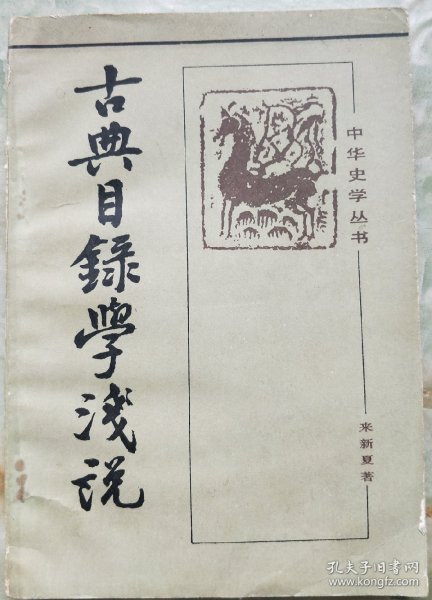 古典目録学淺説
中华史学丛书
来新夏著
孔夫子旧书网
book.kongfz.com